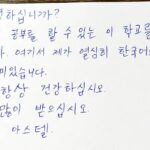 하십니까?
공부를 할 수 있는 이 학교를
여기서 제가 열심히 한국어
미있습니다.
항상 건강하십시오.
많이 받으십시오.
아스텔.